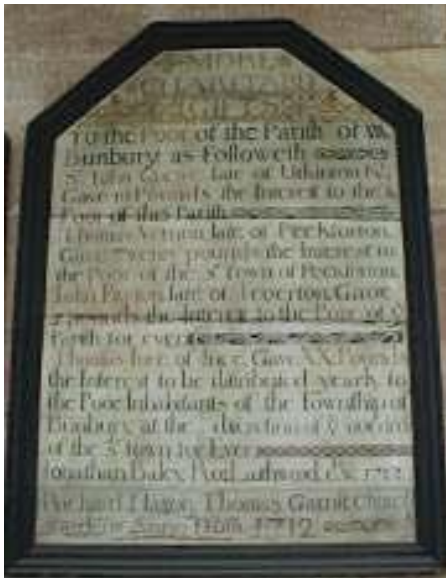 MORE
CHARITABLE
GIFTS
To the Poor of the Parish of
Bunbury as Followeth
Sr John Crewe late of Utkinton Kt
Gave 10 Pounds the Interest to the
Poor of this Parish
Thomas Vernon late of Peckforton,
Gave Twenty pounds the Interest to
the Poor of the sd town of Peckforton.
John late of Teverton, Gave
5 pounds the Interest to the Poor of ye
Parish for ever
Thomas late of Gave XX Pounds
the Interest to be distributed yearly to
the Poor Inhabitants of the Township of
Bunbury at the discretion of ye
of the sd town for Ever
Jonathan
Richard Thomas Garnit Church
Anno Dom 1712